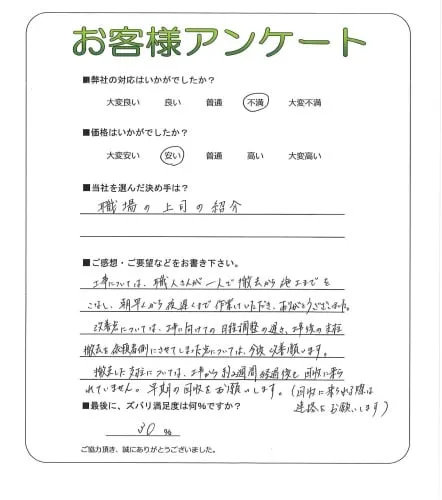 お客様アンケート
■弊社の対応はいかがでしたか？
大変良い 良い 普通 不満 大変不満
■価格はいかがでしたか？
大変安い 安い 普通 高い 大変高い
■当社を選んだ決め手は？
職場の上司の紹介
■ご感想・ご要望などをお書き下さい。
工事については、職人さんが一人で撤去から施工までを
こなし、朝早くから夜遅くまで作業いただき、ありがとうございました。
改善点については、工事に向けての日程調整の遅さ、工事後の支柱
撤去を依頼者側にさせてしまった点については、今後改善願います。
撤去した支柱については、工事から約2週間経過後も回収に来ら
れていません。早期の回収をお願いします。（回収に来られる際は
連絡をお願いします）
■最後に、ズバリ満足度は何％ですか？
30 %
ご協力頂き、誠にありがとうございました。